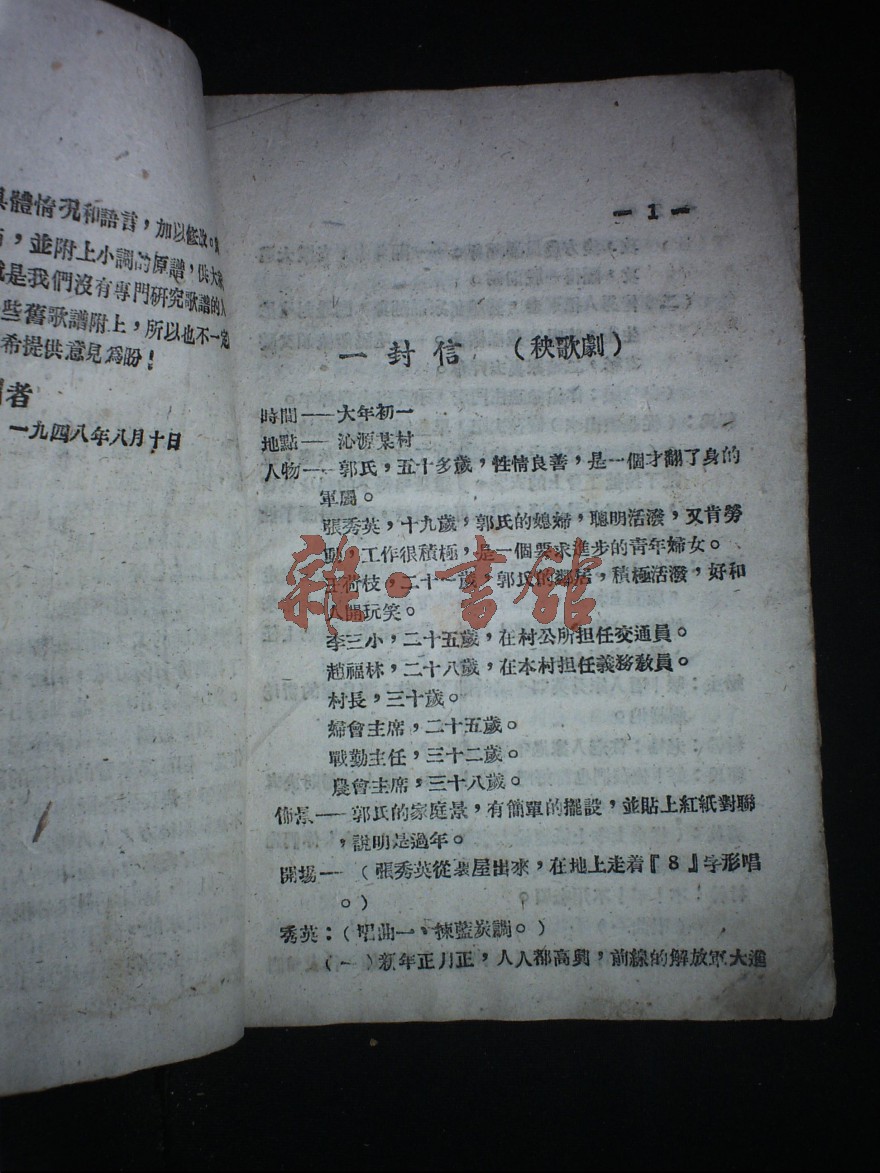 具體情况和語言,加以修改。
,並附上小調的原譜,供大
是我們沒有專門研究歌譜的人
些舊歌譜附上,所以也不一定
希提供意見爲盼!
者
一九四八年八月十日
— 1 —
一封信 (秧歌劇)
時間——大年初一
地點——沁源某村
人物——郭氏,五十多歲,性情良善,是一個才翻了身的
軍屬。
張秀英,十九歲,郭氏的媳婦,聰明活潑,又肯勞
動,工作很積極,是一個要求進步的青年婦女。
王荷枝,二十一歲,郭氏的鄰居,積極活潑,好和
人開玩笑。
李三小,二十五歲,在村公所担任交通員。
趙福林,二十八歲,在本村担任義務教員。
村長,三十歲。
婦會主席,二十五歲。
戰勤主任,三十二歲。
農會主席,三十八歲。
佈景——郭氏的家庭景,有簡單的擺設,並貼上紅紙對聯
,說明是過年。
開場—(張秀英從裏屋出來,在地上走着『8』字形唱
。)
秀英:(唱曲一、揀藍炭調。)
(一)新年正月正,人人都高興,前線的解放軍大進
雜·書館